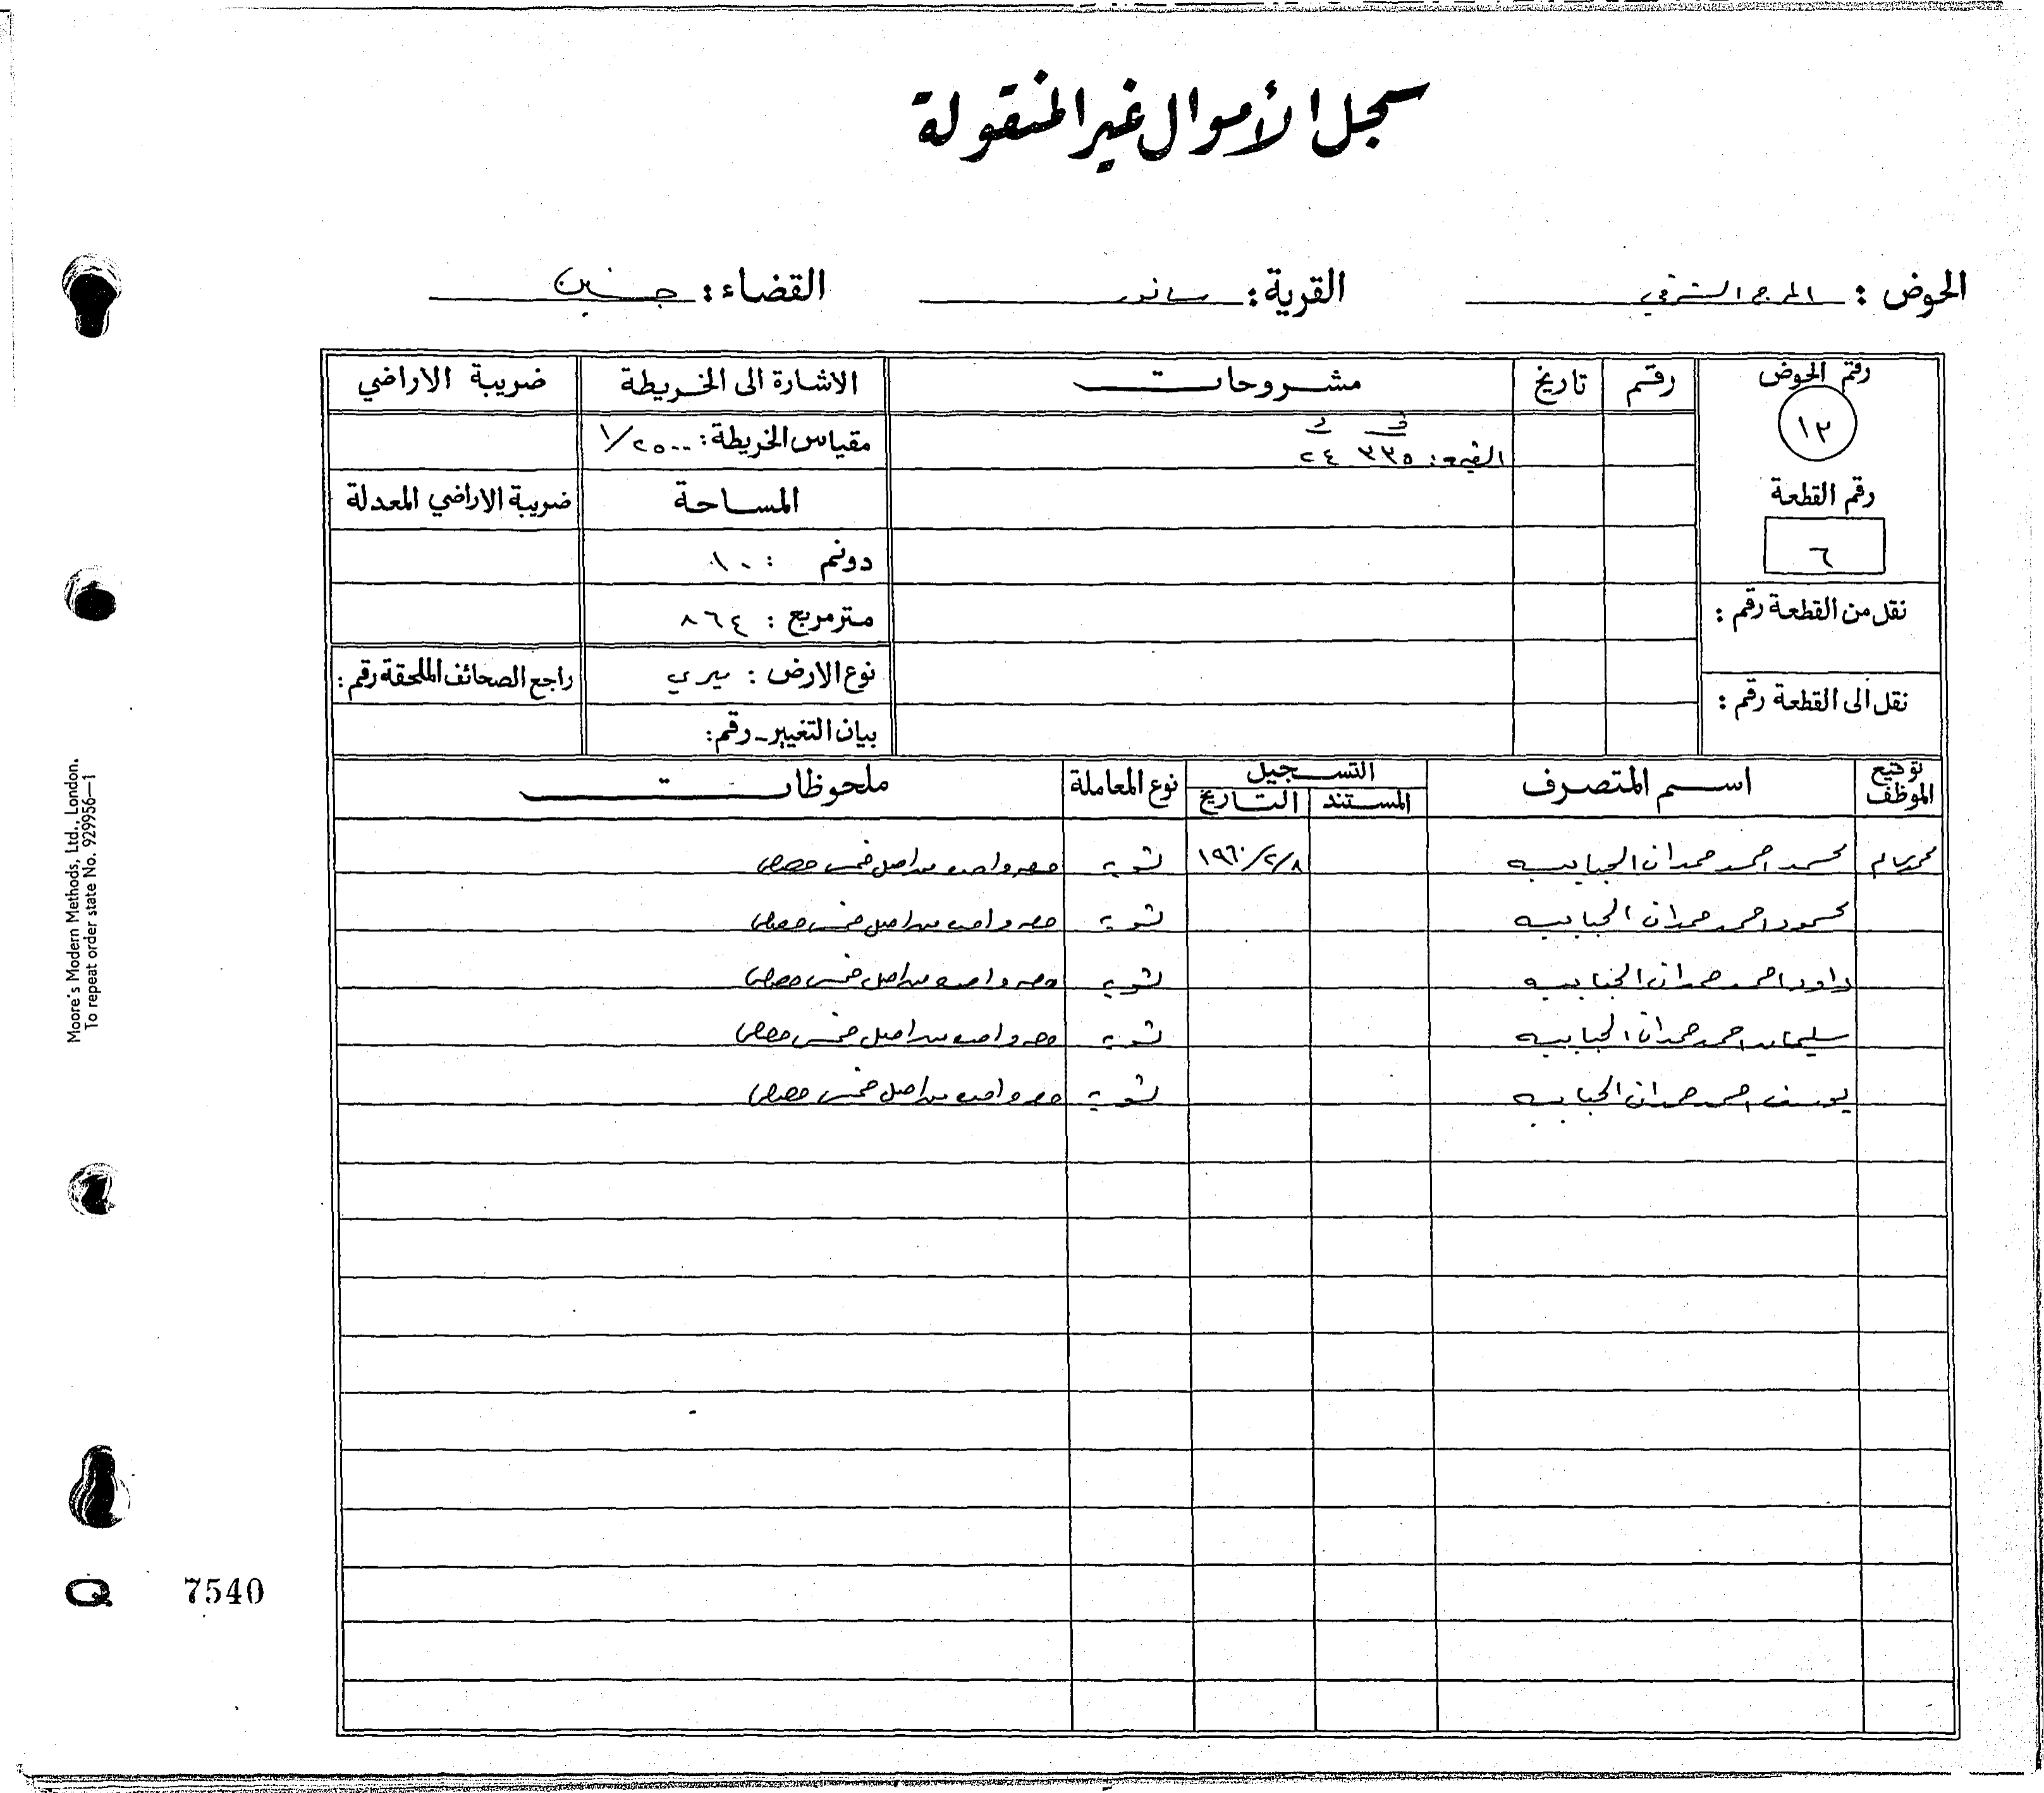 سجل الأموال غير المنقولة
الحوض : المرج الشرقي القرية : سانور القضاء : جنين
رقم الحوض رقم تاريخ مشروحات الاشارة الى الخريطة ضريبة الاراضي
١٢
ف د
القيمة : ٣٣٥ ٢٤
مقياس الخريطة : ١/٢٥٠٠
رقم القطعة المساحة ضريبة الاراضي المعدلة
٦
دونم : ١٠
نقل من القطعة رقم :
متر مربع : ٨٦٤
نوع الارض : ميري راجع الصحائف الملحقة رقم :
نقل الى القطعة رقم :
بيان التغيير - رقم :
توقيع الموظف اسم المتصرف التسجيل نوع المعاملة ملحوظات
المستند التاريخ
محمد احمد حمدان الحبايبه ١٩٦٠/٢/٨ تسوية حصه واحده من اصل خمس حصص
محمود احمد حمدان الحبايبه تسوية حصه واحده من اصل خمس حصص
داود احمد حمدان الحبايبه تسوية حصه واحده من اصل خمس حصص
سليمان احمد حمدان الحبايبه تسوية حصه واحده من اصل خمس حصص
يوسف احمد حمدان الحبايبه تسوية حصه واحده من اصل خمس حصص
Moore's Modern Methods, Ltd., London.
To repeat order state No. 929956—1
Q 7540